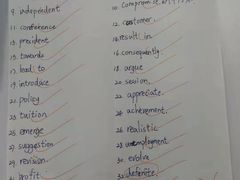 9. independent
11. conference
13. president
15. towards
17. lead to
19. introduce
21. policy
23. tuition
25. emerge
27. suggestion
29. revision.
31. profit
10. compromise
12. customer.
14. result in
16. consequently.
18. argue
20. session.
22. appreciate.
24. achievement.
26. realistic
28. unemployment
30. evolve
32. definite.